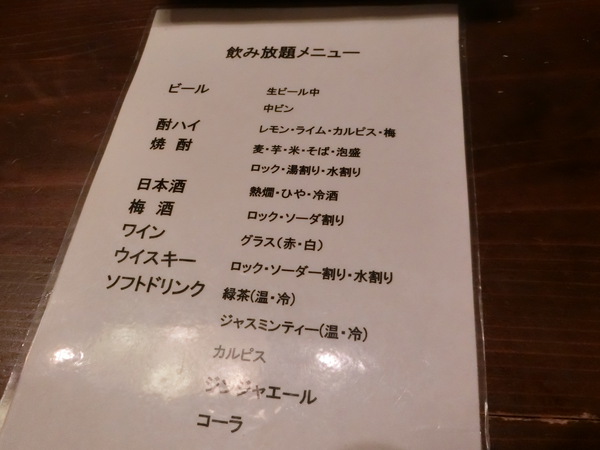 飲み放題メニュー
ビール 生ビール中
中ビン
酎ハイ レモン・ライム・カルピス・梅
焼 酎 麦・芋・米・そば・泡盛
ロック・湯割り・水割り
日本酒 熱燗・ひや・冷酒
梅 酒 ロック・ソーダ割り
ワイン グラス(赤・白)
ウイスキー ロック・ソーダー割り・水割り
ソフトドリンク 緑茶(温・冷)
ジャスミンティー(温・冷)
カルピス
ジンジャエール
コーラ